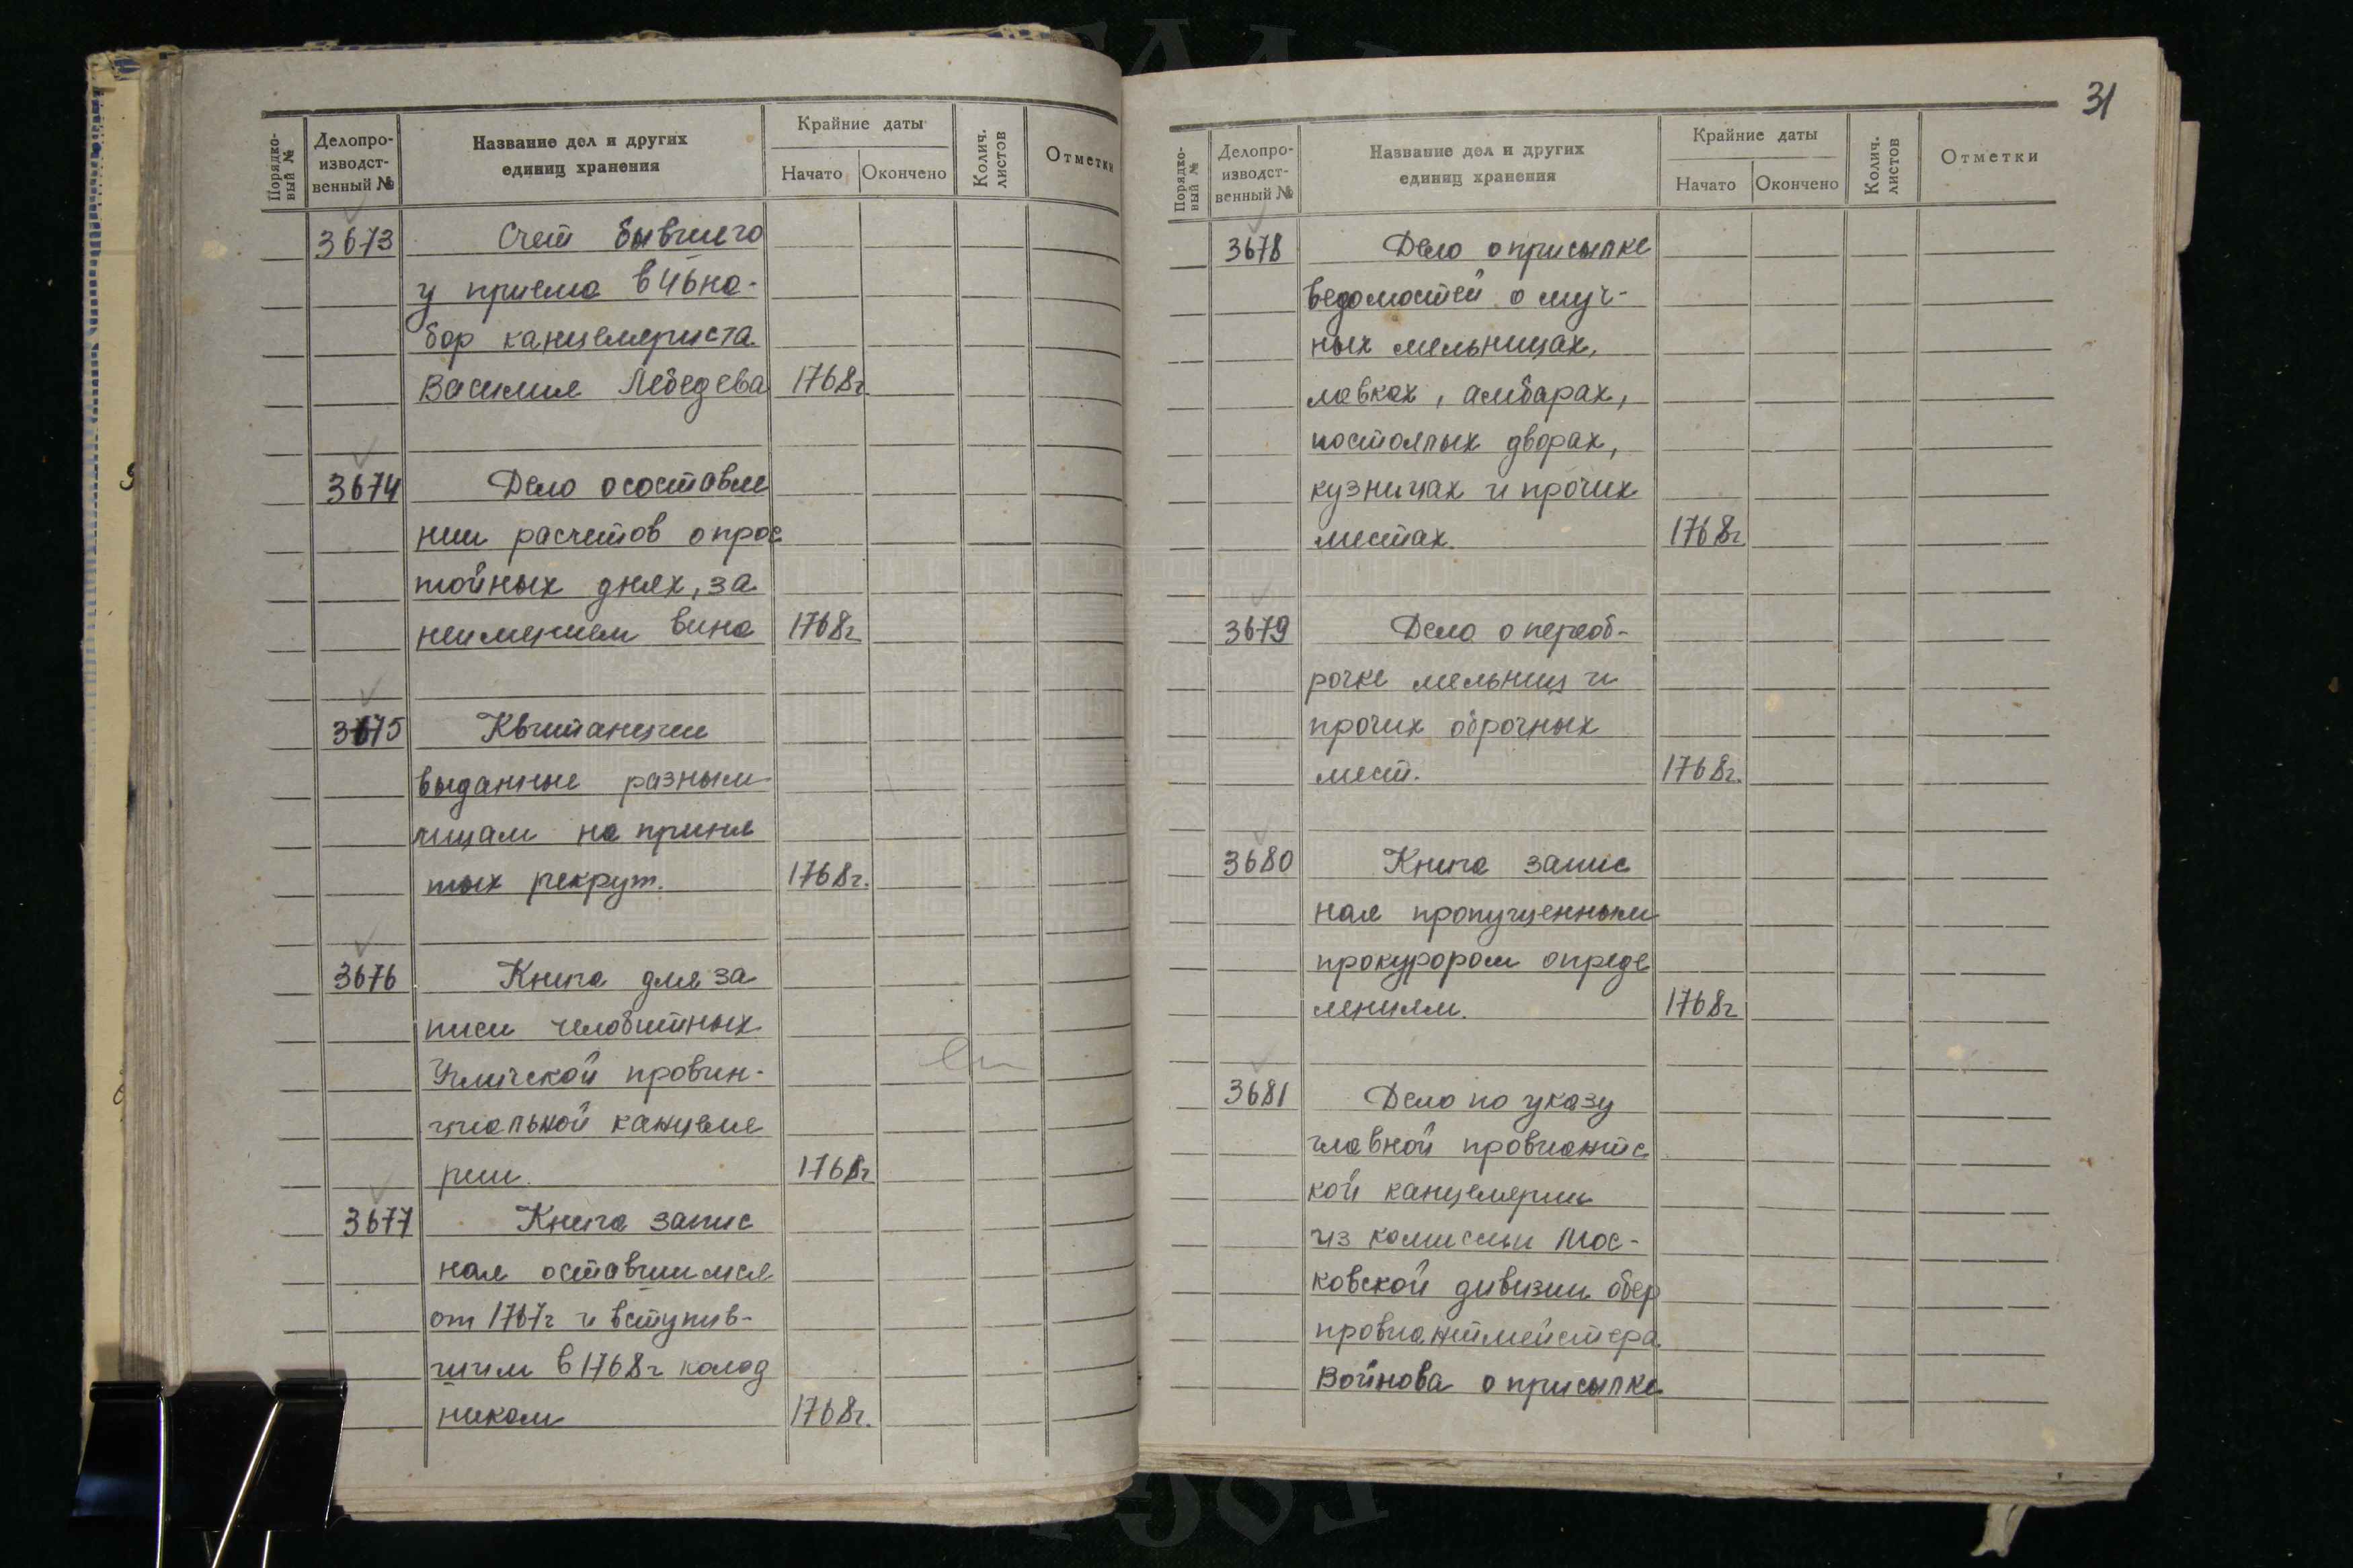 Порядко-
вый №
Делопро-
изводст-
венный №
Название дел и других
единиц хранения
Крайние даты
Начато
Окончено
Колич.
листов
Отметки
3673 Счет бывшего
у приема в 46 на-
бор канцеляриста
Василия Лебедева 1768г.
3674 Дело о составле
нии расчетов о прос
тойных днях, за
неимением вина 1768г
3675 Квитанции
выданные разным
лицам на приня
тых рекрут. 1768г.
3676 Книга для за
писи челобитных
Угличской провин-
циальной канцеля
рии. 1768г
3677 Книга запис
ная оставшимся
от 1767г и вступив-
шим в 1768г колод
никам 1768г.
31
Порядко-
вый №
Делопро-
изводст-
венный №
Название дел и других
единиц хранения
Крайние даты
Начато
Окончено
Колич.
листов
Отметки
3678 Дело о присылке
ведомостей о муч-
ных мельницах,
лавках, амбарах,
постоялых дворах,
кузницах и прочих
местах. 1768г
3679 Дело о переоб-
рочке мельниц и
прочих оброчных
мест. 1768г.
3680 Книга запис
ная пропущенным
прокурором опреде
лениям. 1768г
3681 Дело по указу
главной провиантс
кой канцелярии
из комиссии Мос-
ковской дивизии обер
провиантмейстера
Войнова о присылке